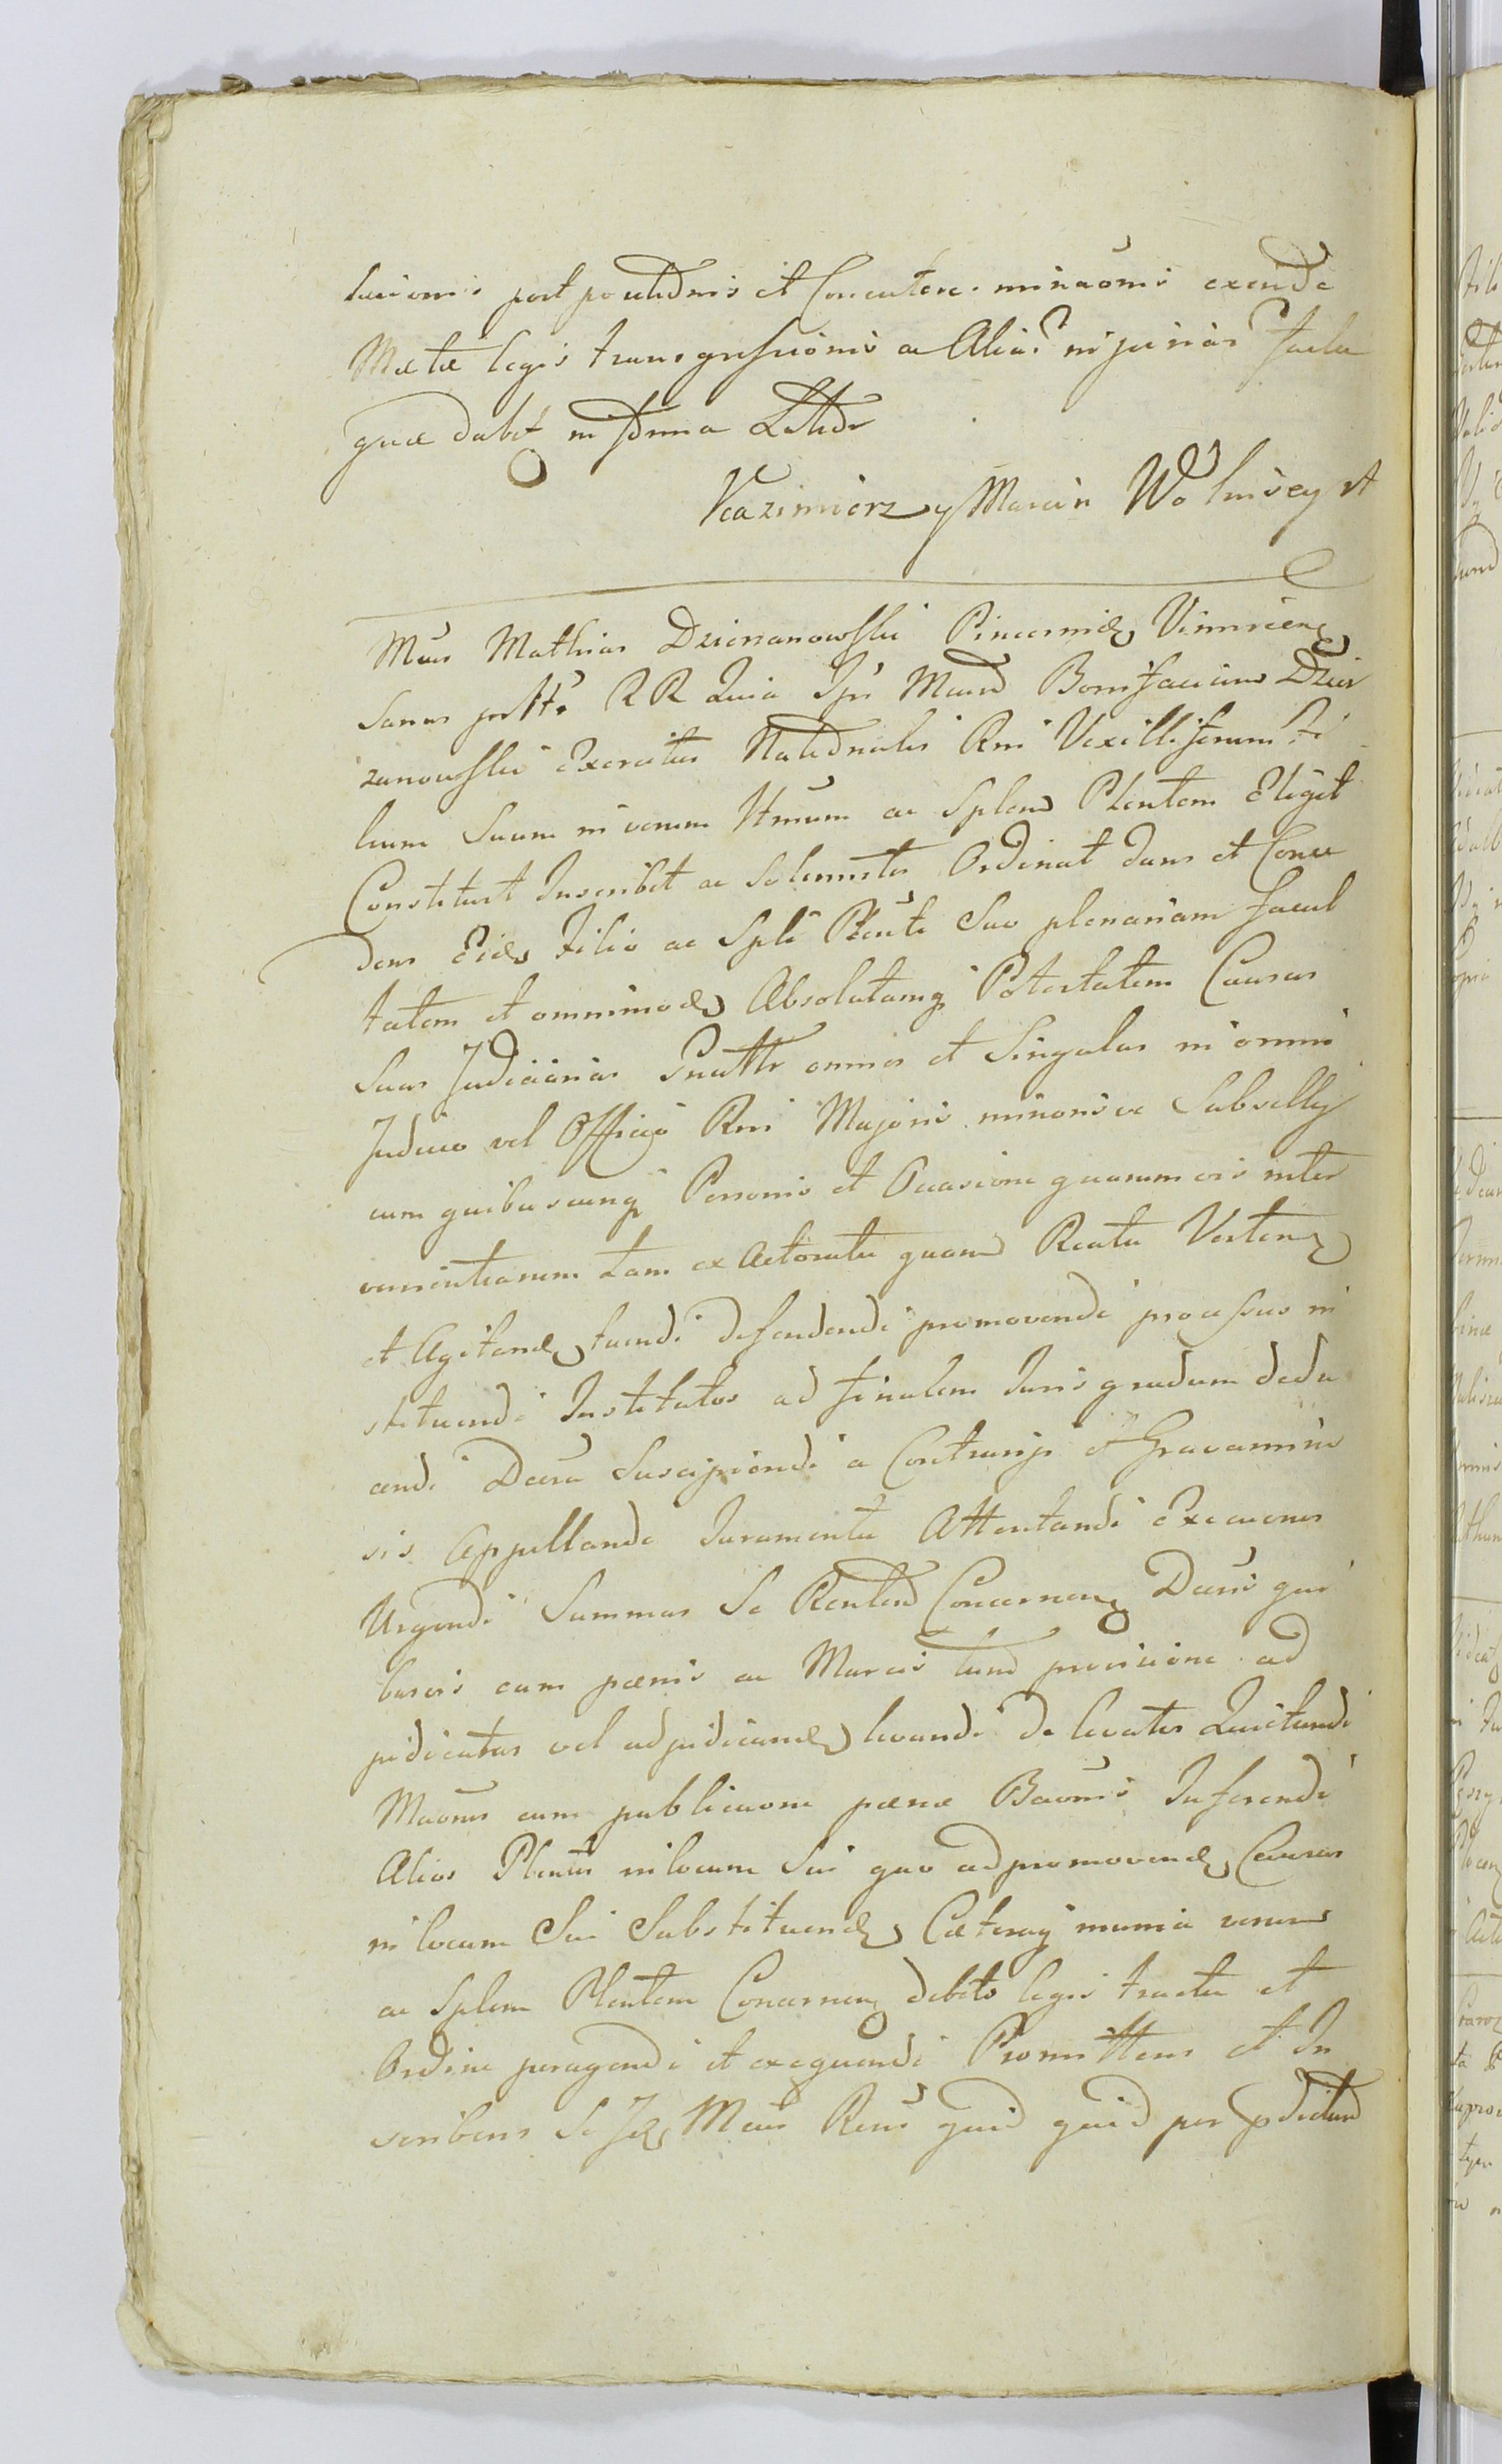 lucionis postpositionis et Concutere minaonis exinde
Metae legis transgressionis ac Alias injurias facta
quae dabit in forma
Kazimierz y Marcin
Mcus Mathias Dzierzanowski Pincernid Vinnicen
Sanus RR Quia Ipse Mcum Bonifacium Dzier
zanowski Exercitus Rni Vexilliferum Fi
lium Suum in verum ac Splem Plentem Eligit
Constituit Inscribit ac Solemniter Ordinat dans et Conce
dens Eid Filio ac Spli Plenti Suo plenariam facul
tatem et omnimod Absolutamq Potestatem Causas
Suas Judiciarias omnes et Singulas in omni
Judicio vel Officio Rni Majoris minorisve Subsellij
cum quibuscunq Personis et Occasione quarumvis inter
venientiarum tam ex Actoratu quam Reatu Verten
et Agitand tuendi defendendi promovendi processus in
stituendi Institutos ad finalem Juris gradum dedu
cendi Decreta Suscipiendi a Contrarijs et Gravamino
sis Appellandi Juramenta Attentandi Execuones
Urgendi Summas Se Concernen Decris qui
busvis cum paenis ac Marcis tum provisione ad
judicatas vel adjudicand levandi de levatis Quietandi
Maones cum publicaone paenae Baonis Inferendi
Alios Plentes in locum Sui quo ad promovend Causas
in locum Sui Substituend Caeteraq munia verum
ac Splem Plentem Concernen debito legis tractu et
Ordine peragendi et exequendi Promittens et In
scribens Se Id Mcus Rens quid quid per pdictum